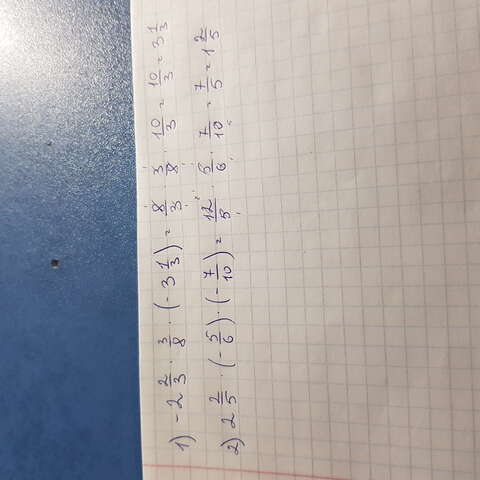 1) -2 2/3 · 3/8 · (-3 1/3) = 8/3 · 3/8 · 10/3 = 10/3 = 3 1/3
2) 2 2/5 · (-5/6) · (-7/10) = 12/5 · 5/6 · 7/10 = 7/5 = 1 2/5